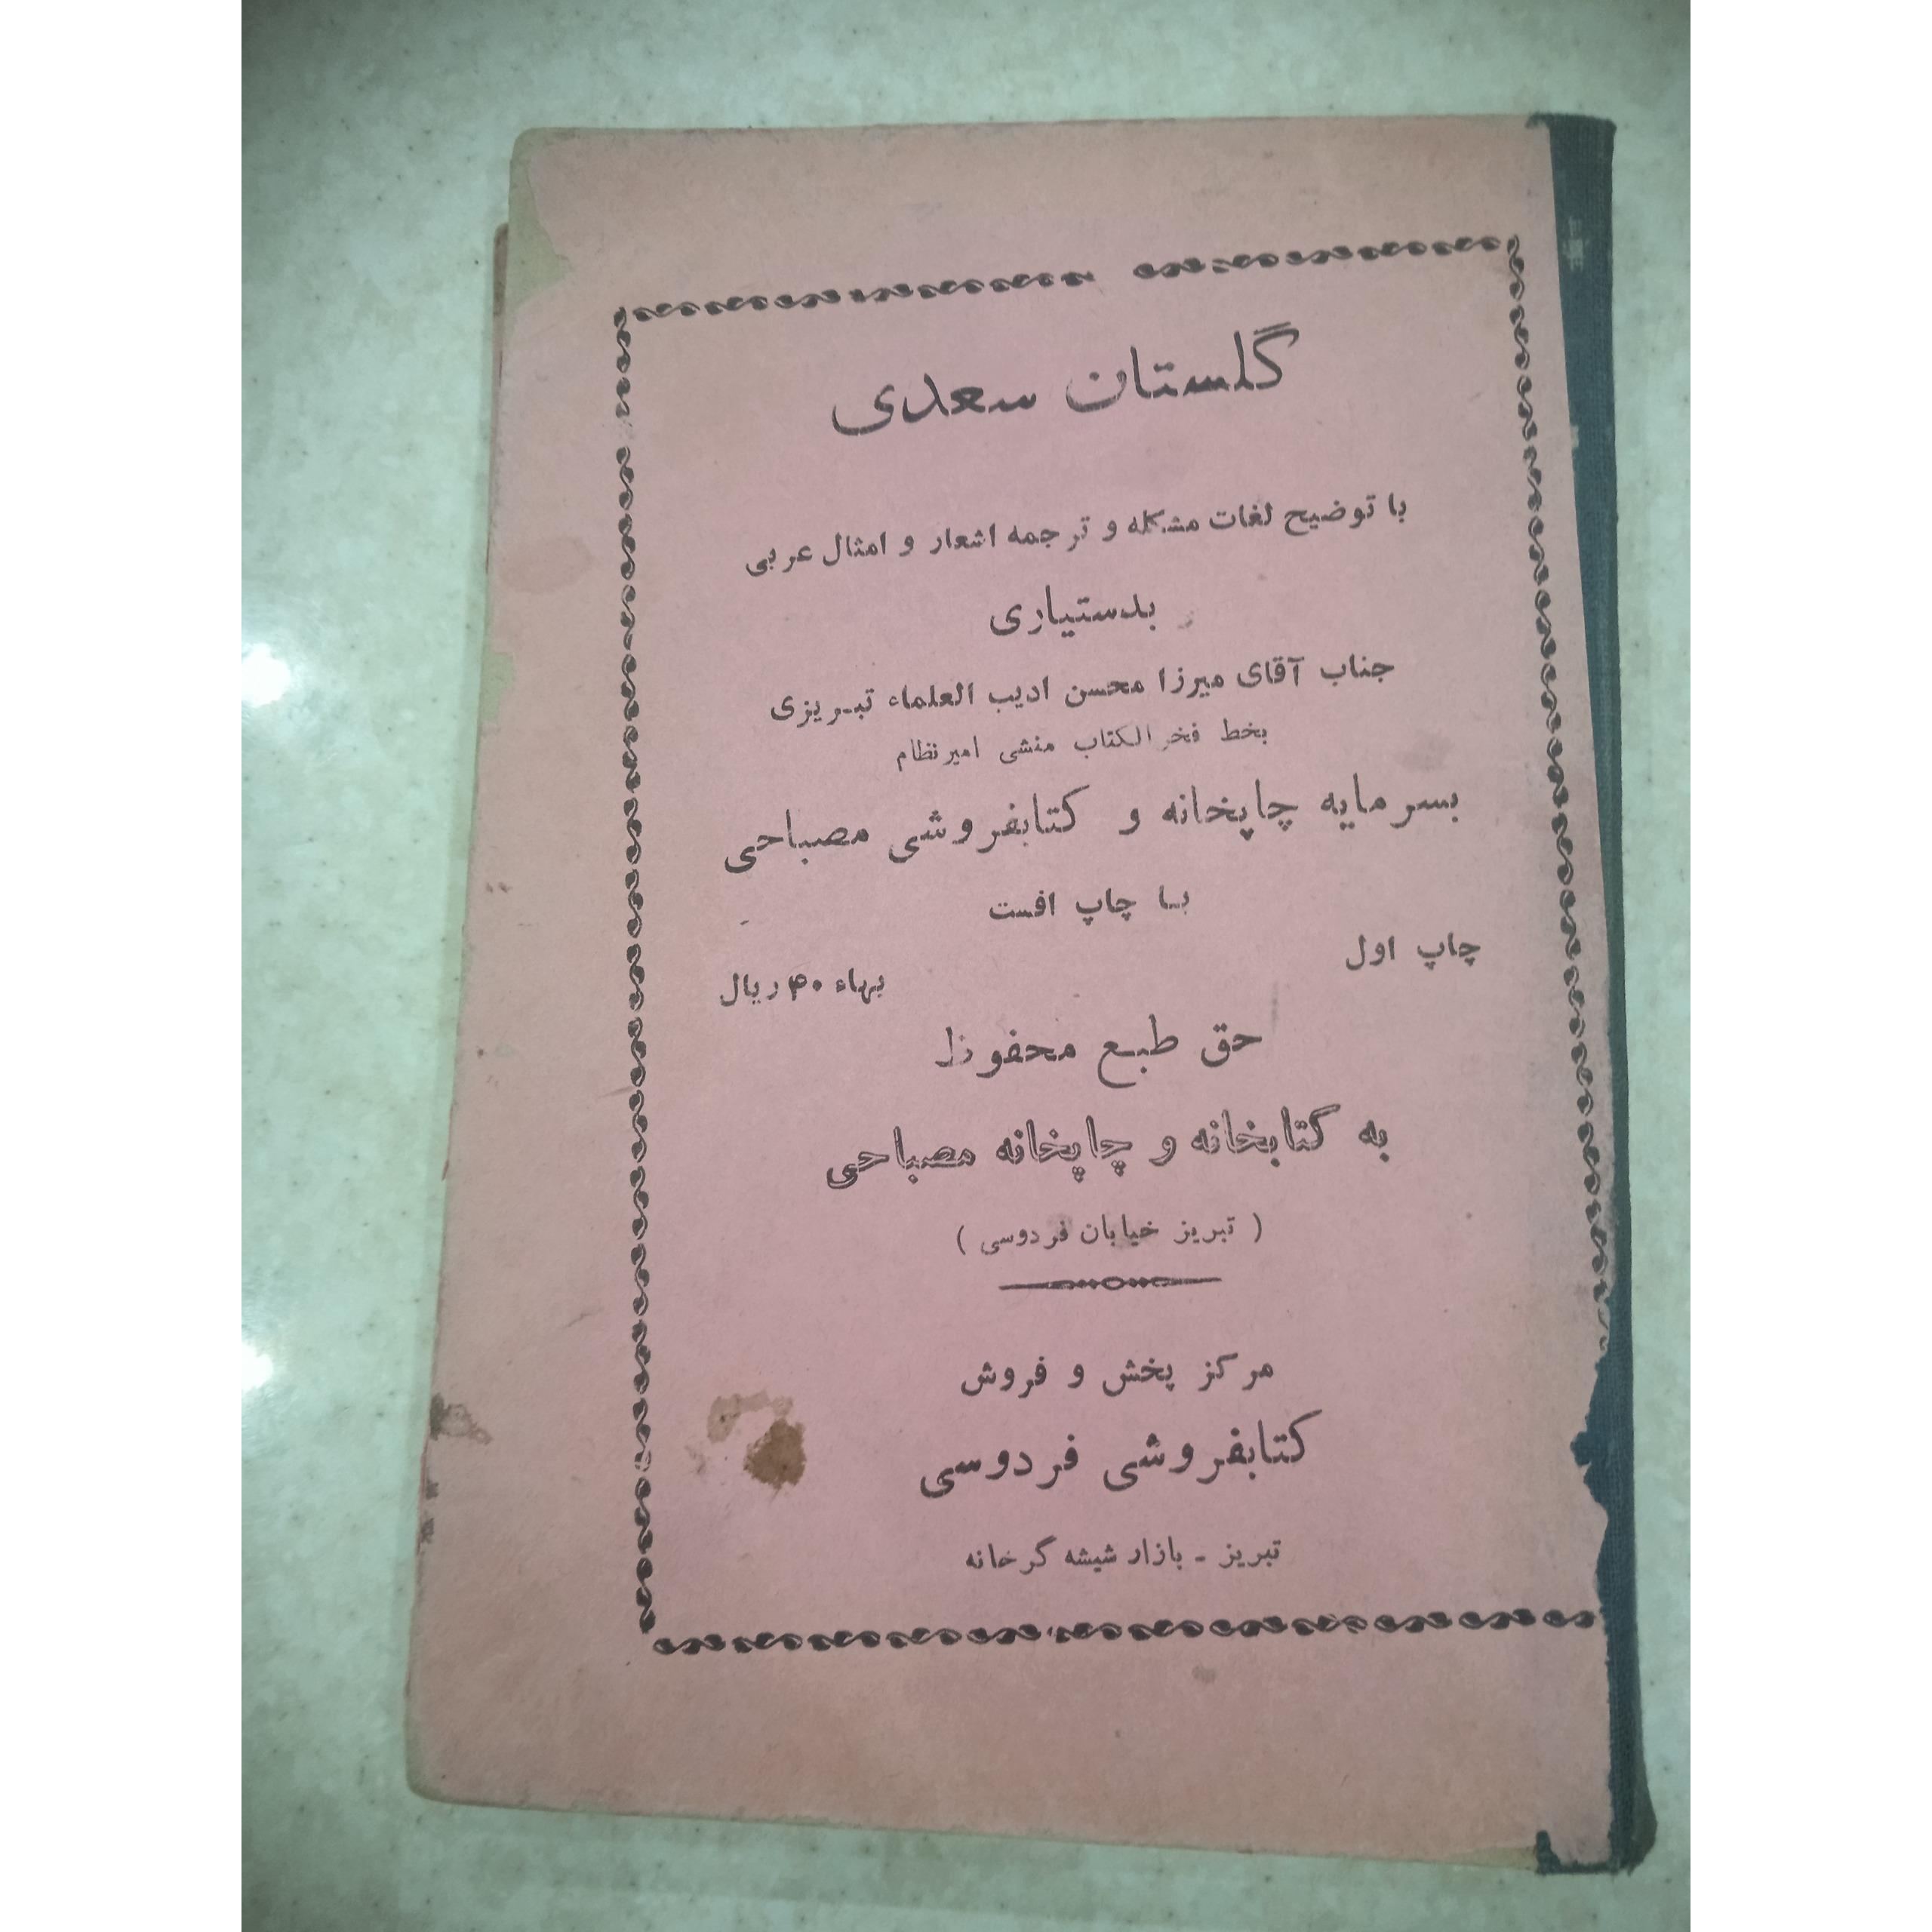 گلستان سعدی
با توضیح لغات مشکله و ترجمه اشعار و امثال عربی
بدستیاری
جناب آقای میرزا محسن ادیب العلماء تبریزی
بخط فخرالکتاب منشی امیرنظام
بسرمایه چاپخانه و کتابفروشی مصباحی
با چاپ افست
چاپ اول
بهاء ۴۰ ریال
حق طبع محفوظ
به کتابخانه و چاپخانه مصباحی
( تبریز خیابان فردوسی )
مرکز پخش و فروش
کتابفروشی فردوسی
تبریز - بازار شیشه گرخانه